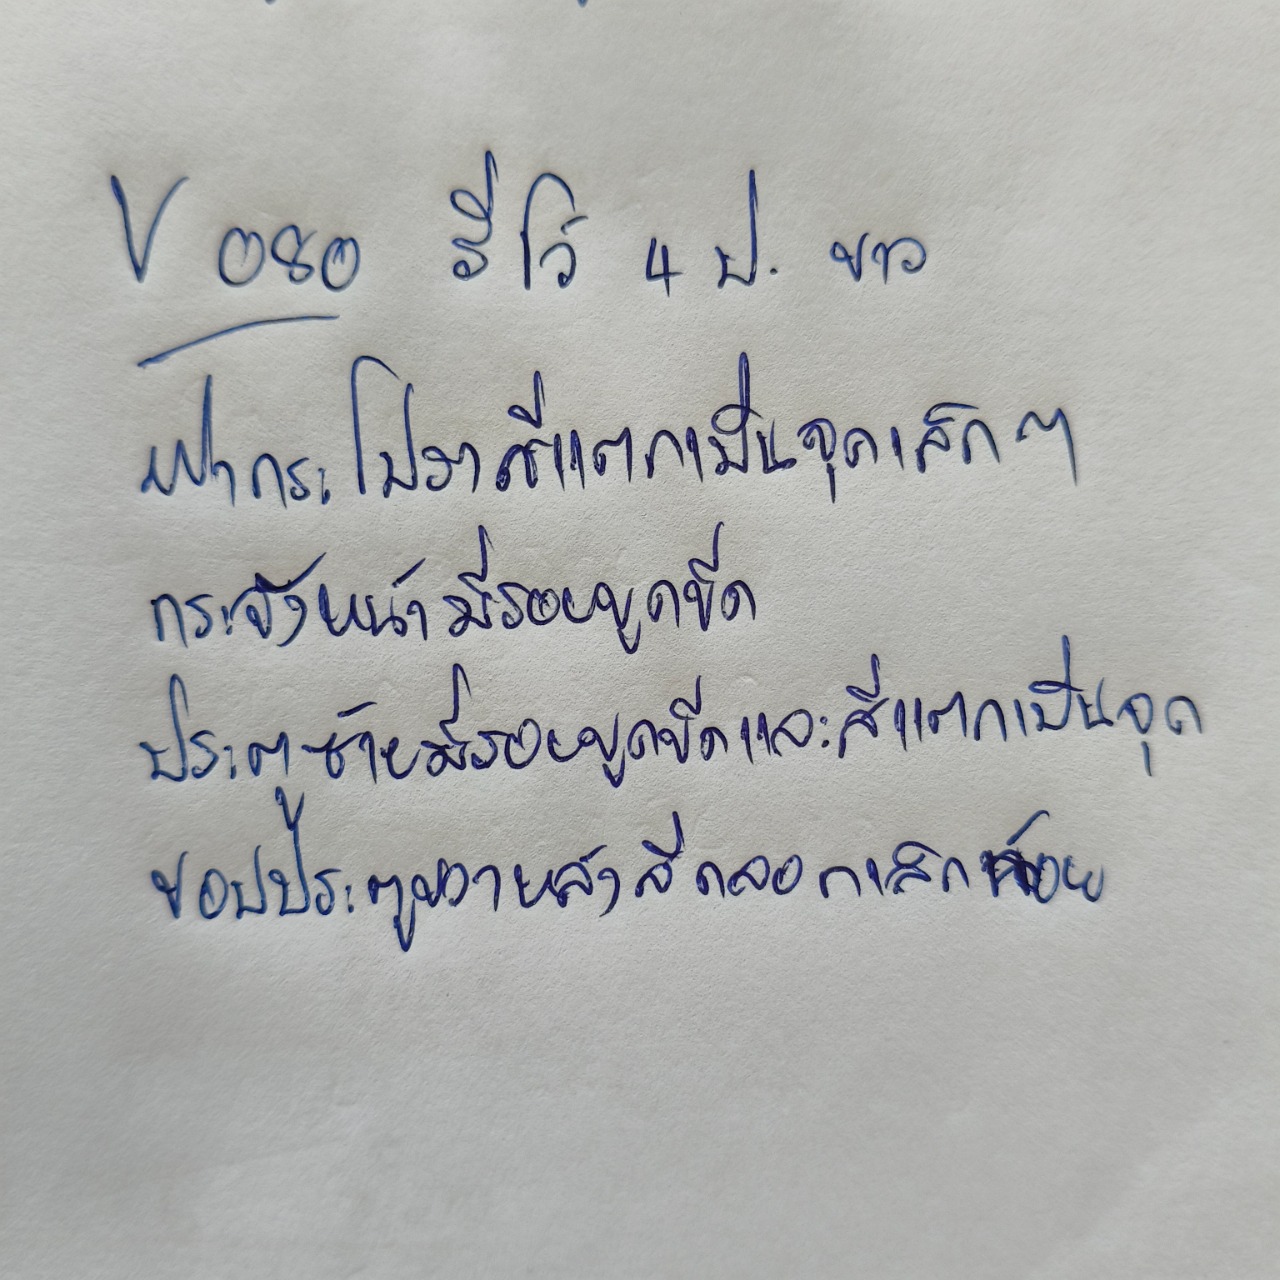 V 080 รีโว้ 4 ป. ขาว
ฝากระโปรง สีแตกเป็นจุดเล็กๆ
กระจังหน้ามีรอยขูดขีด
ประตูซ้ายมีรอยขูดขีดและสีแตกเป็นจุด
ขอบประตูขวาหลัง สีถลอกเล็กน้อย